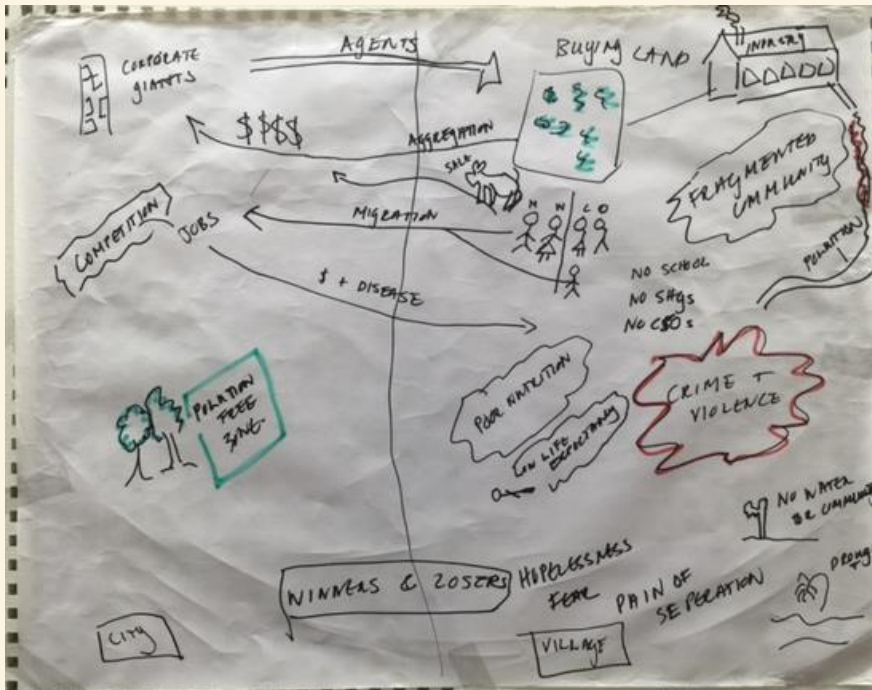 CORPORATE
GIANTS
AGENTS
BUYING LAND
INDUSTRY
$$$$
AGGREGATION
SALE
FRAGMENTED
COMMUNITY
COMPETITION
JOBS
MIGRATION
M W C O
POLUTION
$ + DISEASE
NO SCHOOL
NO SHGS
NO CSOs
POLUTION
FREE
ZONE
POOR NUTRITION
LOW LIFE
EXPECTANCY
CRIME +
VIOLENCE
NO WATER
OR COMMUNITY
WINNERS & LOSERS
HOPELESSNESS
FEAR
PAIN OF
SEPERATION
CITY
VILLAGE